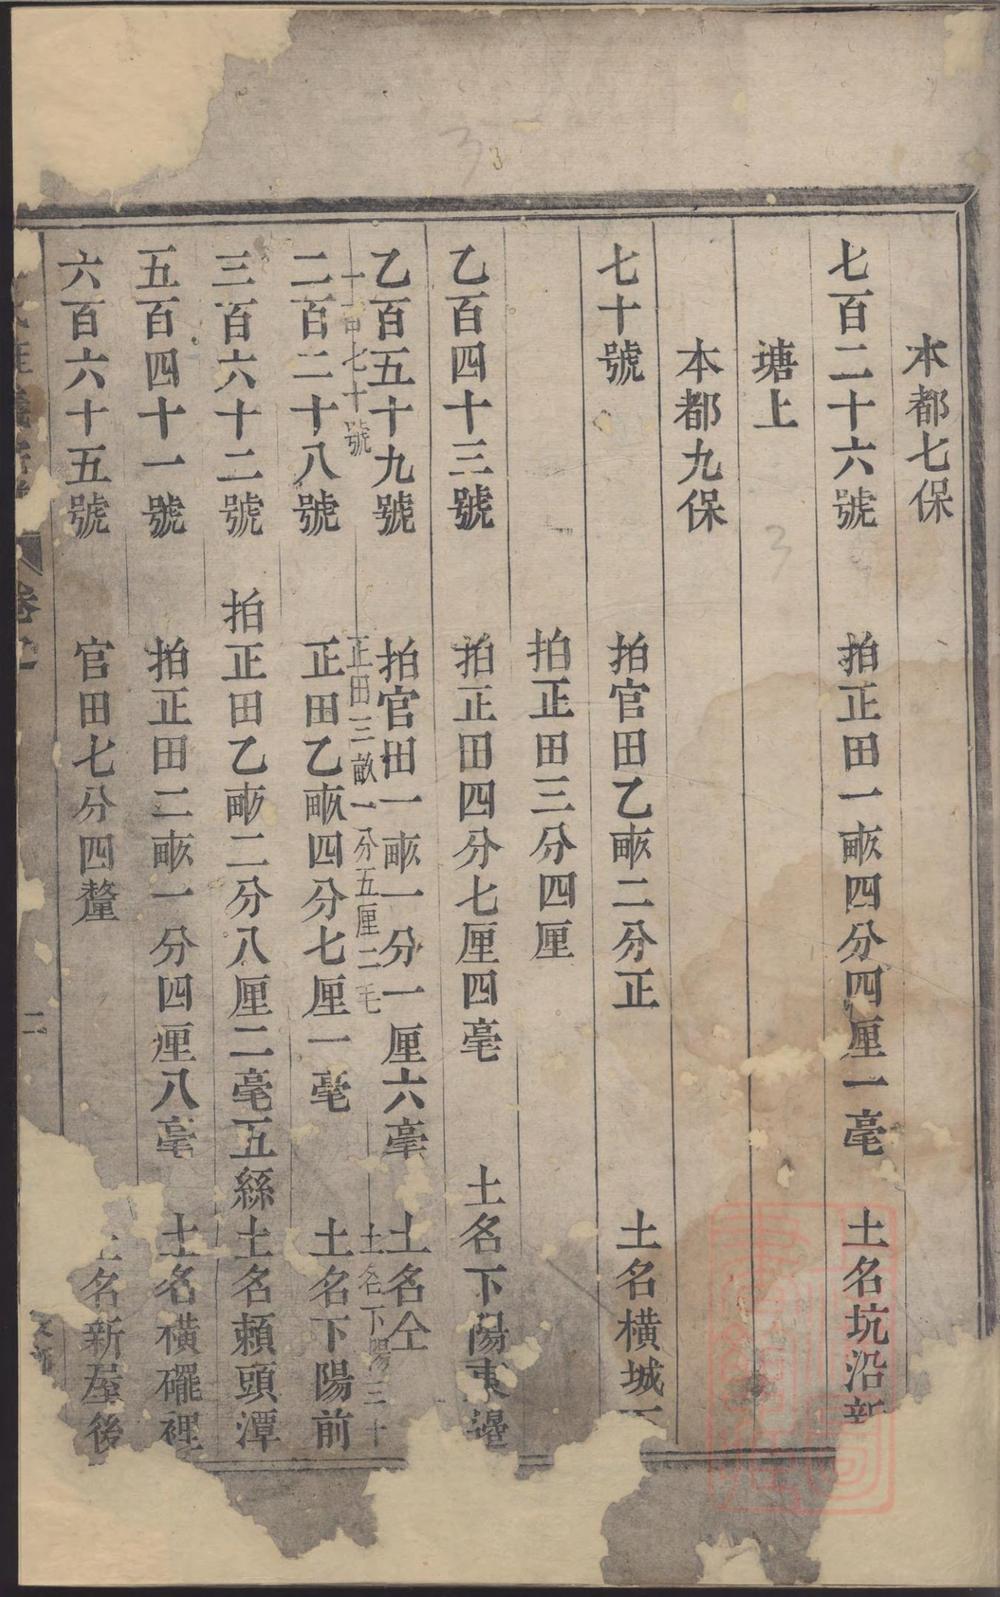 本都七保
七百二十六號 拍正田一畝四分四厘一毫 土名坑沿新
塘上
本都九保
七十號 拍官田乙畝二分正 土名橫城
拍正田三分四厘
乙百四十三號 拍正田四分七厘四毫 土名下陽東邊
乙百五十九號 拍官田一畝一分一厘六毫 土名仝
一百七十號 正田三畝一分五厘二毛 土名下陽三十
二百二十八號 正田乙畝四分七厘一毫 土名下陽前
三百六十二號 拍正田乙畝二分八厘二毫五絲 土名賴頭潭
五百四十一號 拍正田二畝一分四厘八毫 土名橫礶裡
六百六十五號 官田七分四釐 土名新屋後
二